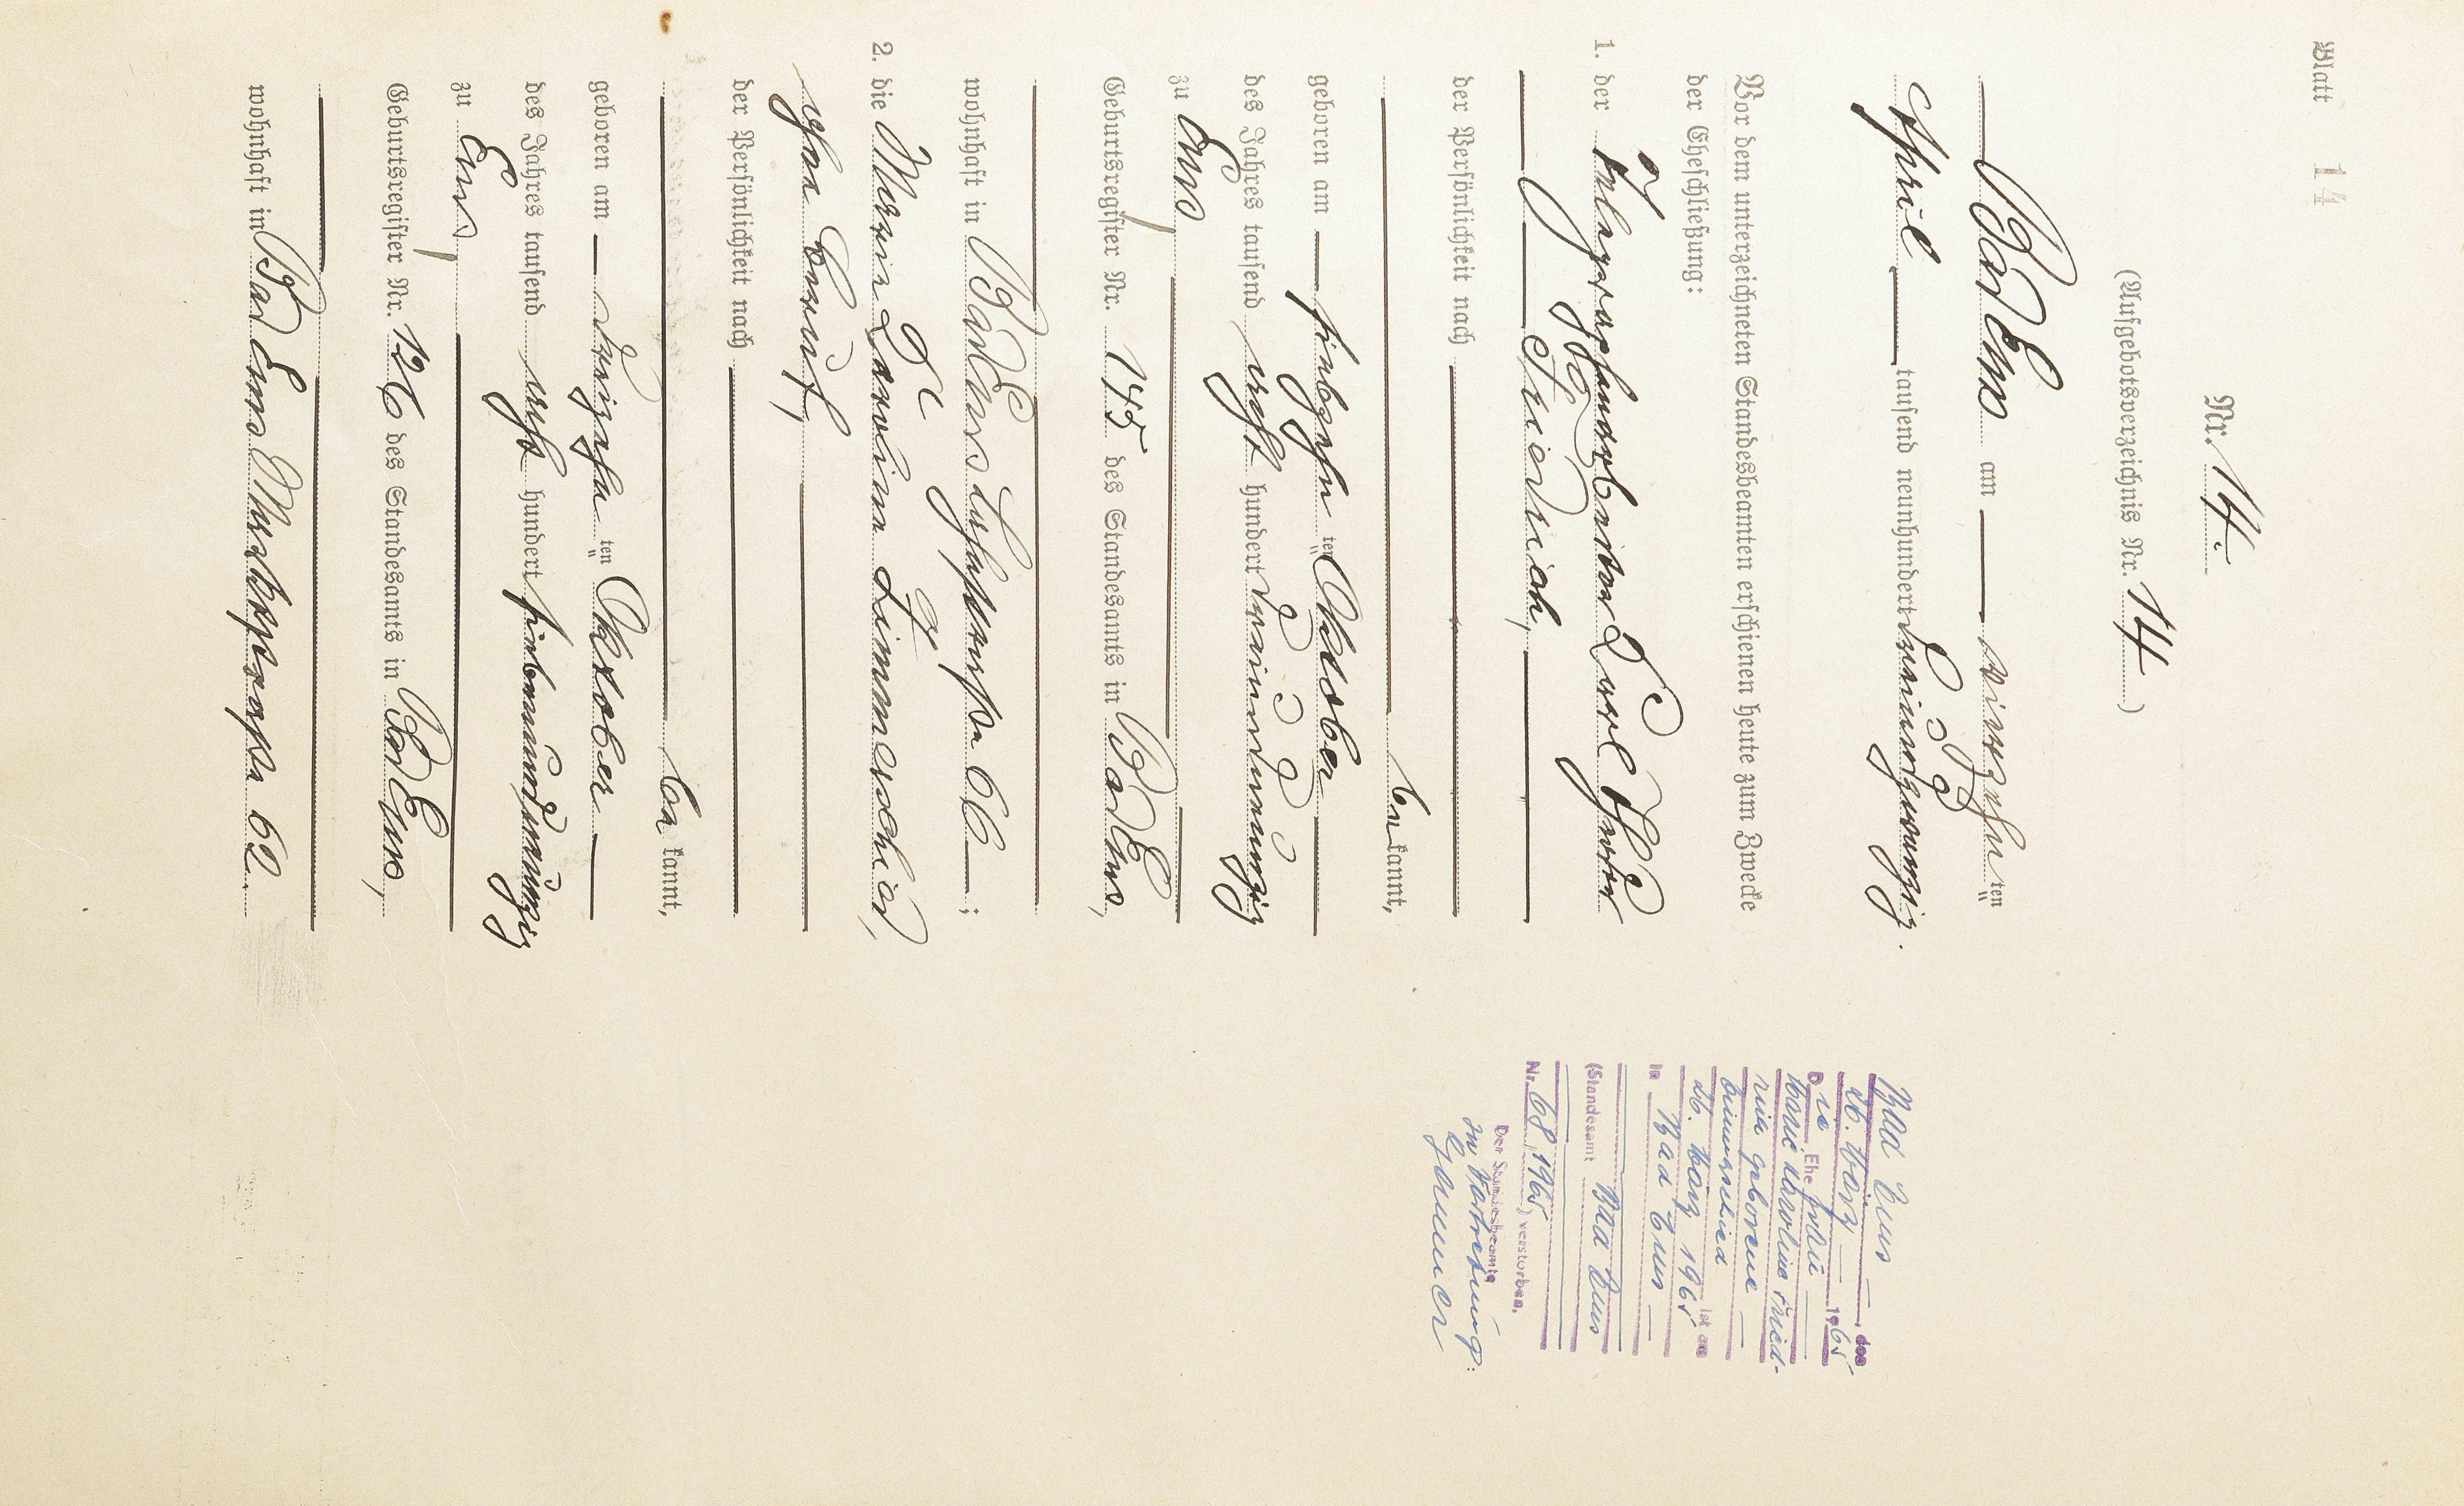 Blatt 14
Nr. 14.
(Aufgebotsverzeichnis Nr. 14)
Bad Ems am vierzehnten
April tausend neunhundert dreiundzwanzig.
Vor dem unterzeichneten Standesbeamten erschienen heute zum Zwecke
der Eheschließung:
1. der Telegraphenarbeiter Karl
Friedrich,
der Persönlichkeit nach
be kannt,
geboren am siebzehn ten Oktober
des Jahres tausend acht hundert dreiundneunzig
zu Ems
Geburtsregister Nr. 145 des Standesamts in Bad Ems,
wohnhaft in Bad Ems Lahnstraße 66;
2. die Maria Karoline Zimmerschied,
ohne Beruf,
der Persönlichkeit nach
be kannt,
geboren am dreizehn ten Oktober
des Jahres tausend acht hundert siebenundneunzig
zu Ems
Geburtsregister Nr. 126 des Standesamts in Bad Ems,
wohnhaft in Bad Ems Marktstraße 62.
Bad Ems, den
26. März 1965
Die Ehefrau
Marie Karoline Fried-
rich geborene
Zimmerschied ist am
26. März 1965
in Bad Ems
(Standesamt Bad Ems
Nr. 68/1965) verstorben.
Der Standesbeamte
In Vertretung: